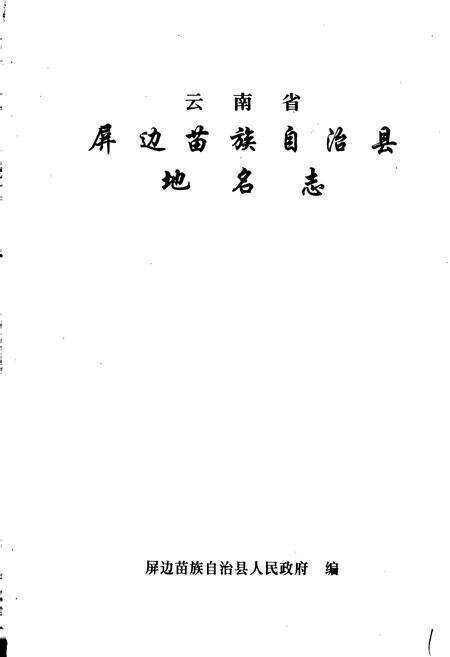 云南省
屏边苗族自治县
地名志
屏边苗族自治县人民政府 编